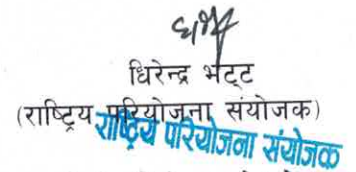 धिरेन्द्र भट्ट
(राष्ट्रिय परियोजना संयोजक)
राष्ट्रिय परियोजना संयोजक